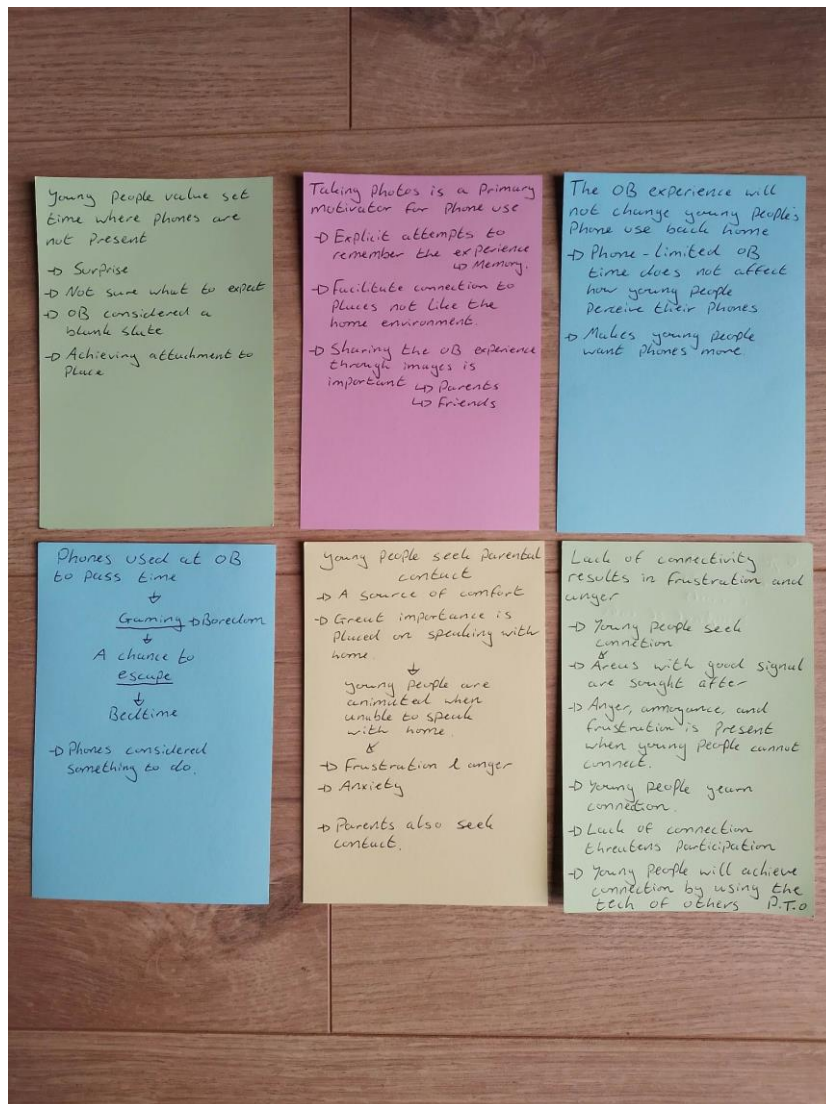 Young People value set
time where phones are
not Present
→ Surprise
→ Not sure what to expect
→ OB considered a
blank slate
→ Achieving attachment to
Place
Taking Photos is a Primary
motivator for Phone use
→ Explicit attempts to
remember the experience
↳ Memory.
→ Facilitate connection to
Places not like the
home environment.
→ Sharing the OB experience
through images is
important ↳ Parents
↳ Friends
The OB experience will
not change young people's
Phone use back home
→ Phone-limited OB
time does not affect
how young people
Perceive their Phones
→ Makes young people
want phones more.
Phones used at OB
to pass time
↓
Gaming → Boredom
↓
A chance to
escape
↓
Bedtime
→ Phones considered
something to do.
Young People seek Parental
contact
→ A source of comfort
→ Great importance is
Placed on speaking with
home.
↓
Young People are
animated when
unable to speak
with home.
↙
→ Frustration & anger
→ Anxiety
→ Parents also seek
contact.
Lack of connectivity
results in Frustration and
anger
→ Young People seek
connection
↙
→ Areas with good signal
are sought after
→ Anger, annoyance, and
frustration is Present
when young People cannot
connect.
→ Young People yearn
connection.
→ Lack of connection
threatens Participation
→ Young People will achieve
connection by using the
tech of others P.T.O